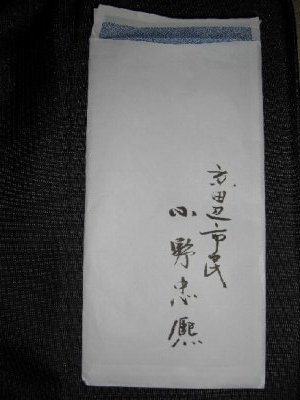 京田辺市民
小野忠熈